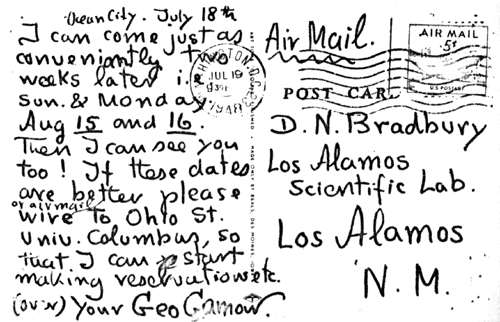 Ocean City. July 18th
I can come just as
conveniantly two
weeks later i.e.
Sun. & Monday
Aug 15 and 16.
Then I can see you
too! If these dates
are better please
or airmail
wire to Ohio St.
Univ. Columbus, so
that I can start
making reservations etc.
(over) Your Geo Gamow.
Air Mail.
JUL 19
AIR MAIL
5¢
U.S. POSTAGE
POST CARD
D. N. Bradbury
Los Alamos
Scientific Lab.
Los Alamos
N. M.